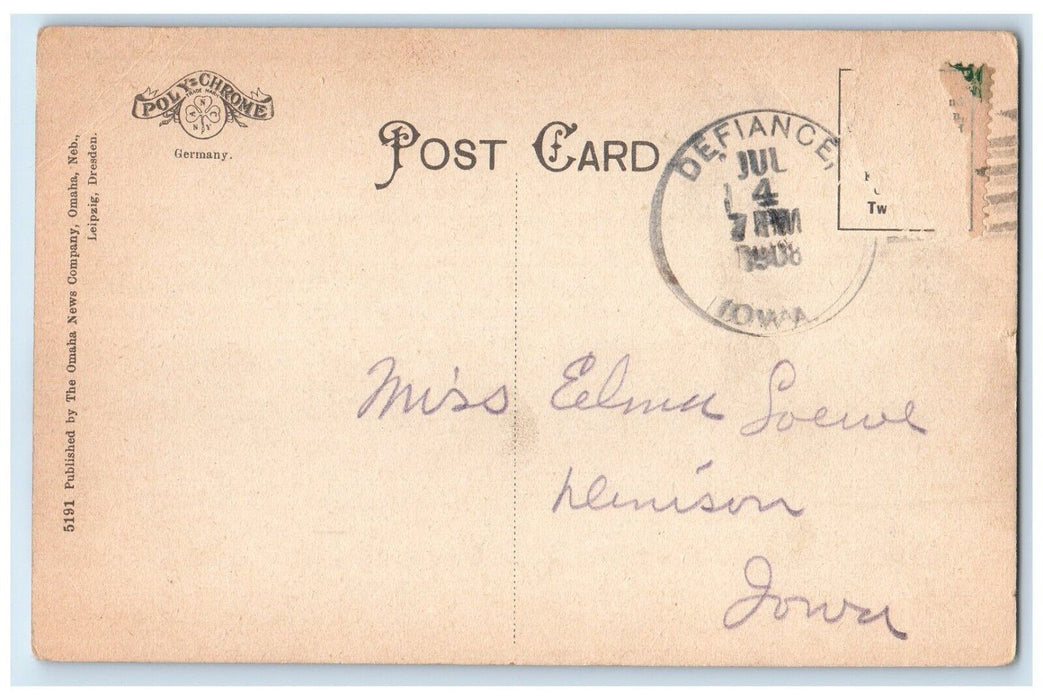 POLY-CHROME
TRADE MARK
Germany.
POST CARD
DEFIANCE,
JUL
4
1908
IOWA
Tw
5191 Published by The Omaha News Company, Omaha, Neb.,
Leipzig, Dresden.
Miss Eelma Loewe
Denison
Iowa